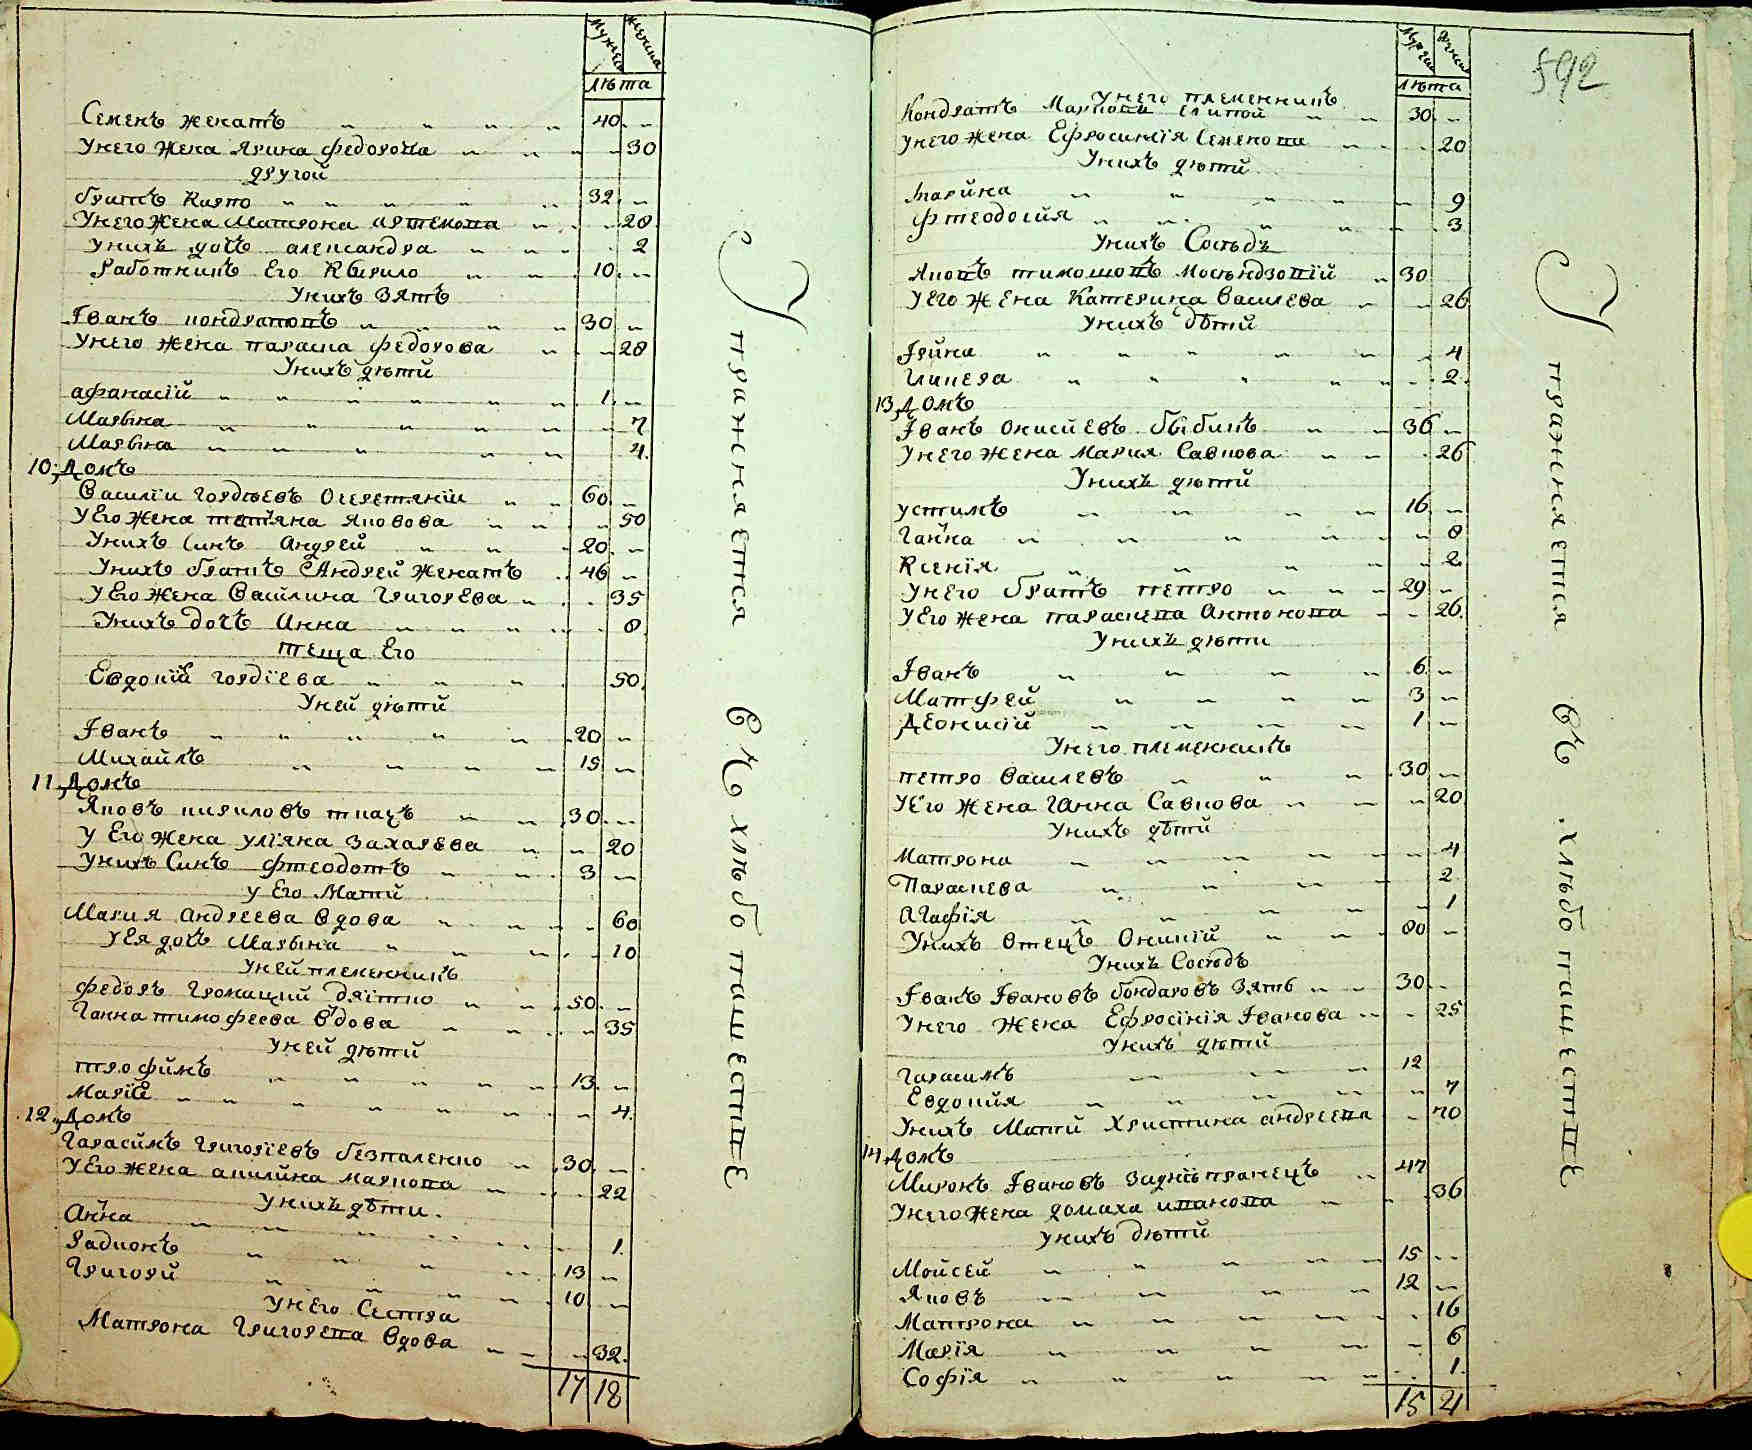 Мужеска Женска
Лѣта
Семенъ женатъ 40
Унего жена Ярина Федорова 30
другой
братъ Карпо 32
Унего жена Матрона Артемова 28
Унихъ дочъ Александра 2
Работникъ Его Кирило 10
Унихъ Зять
Іванъ Кондратовъ 30
Унего жена Параска Федорова 28
Унихъ дѣтй
Афанасій 1
Марьіна 7
Марьіна 4
10 Домъ
Василій Гордѣевъ 60
У Его жена Татьяна Яковова 50
Унихъ Синъ Андрей 20
Унихъ братъ Андрей женатъ 46
У Его жена Василина Григорева 35
Унихъ дочъ Анна 8
теща Его
Евдокій Гордіева 50
Уней дѣтй
Іванъ 20
Михайлъ 15
11 Домъ
Яковъ Кириловъ ткачъ 30
У Его жена Уліяна Захарева 20
Унихъ Синъ Фтеодотъ 3
У Его Матй
Мария Андреева Вдова 60
У Ея дочъ Марьіна 10
Уней племенникъ
Федоръ Громацкій 50
Ганна Тимофеева Вдова 35
Уней дѣтй
Трофймъ 13
Маріе 4
12 Домъ
Гарасймъ Григоріевъ Безпаленко 30
У Его жена Акилйна Маркова 22
Унихъ дѣти
Анна 1
Радионъ 13
Григорй 10
Унего Сестра
Матрона Григорева Вдова 32
17 18
Продолжается Въ Хлѣбопашествѣ
592
Мужеска Женска
Лѣта
Унего племенникъ
Кондратъ Марковъ 30
Унего жена Ефросинія Семенова 20
Унихъ дѣтй
Марйна 9
Фтеодосйя 3
Унихъ Сосѣдъ
Яковъ Тимошовъ 30
У Его жена Катерина Василева 26
Унихъ дѣтй
Ірйна 4
Гликера 2
13 Домъ
Іванъ Онисйевъ Бьібикъ 36
Унего жена Мария Савкова 26
Унихъ дѣтй
Устимъ 16
Ганна 8
Ксенія 2
Унего братъ Петро 29
У Его жена Параскева Антонова 26
Унихъ дѣти
Іванъ 6
Матфей 3
Деонисій 1
Унего племенникъ
Петро Василевъ 30
У Его жена Ганна Савкова 20
Унихъ дѣтй
Матрона 4
Параскева 2
Агафія 1
Унихъ Отецъ Онисій 80
Унихъ Сосѣдъ
Іванъ Івановъ Бондаровъ Зять 30
Унего жена Ефросінія Іванова 25
Унихъ дѣтй
Гарасимъ 12
Евдокйя 7
Унихъ Матй Христина Андреева 70
14 Домъ
Миронъ Івановъ Заднѣпранецъ 47
Унего жена Домаха Иванова 36
Унихъ дѣтй
Мойсей 15
Яковъ 12
Матрона 16
Марія 6
Софія 1
15 21
Въ Хлѣбопашествѣ